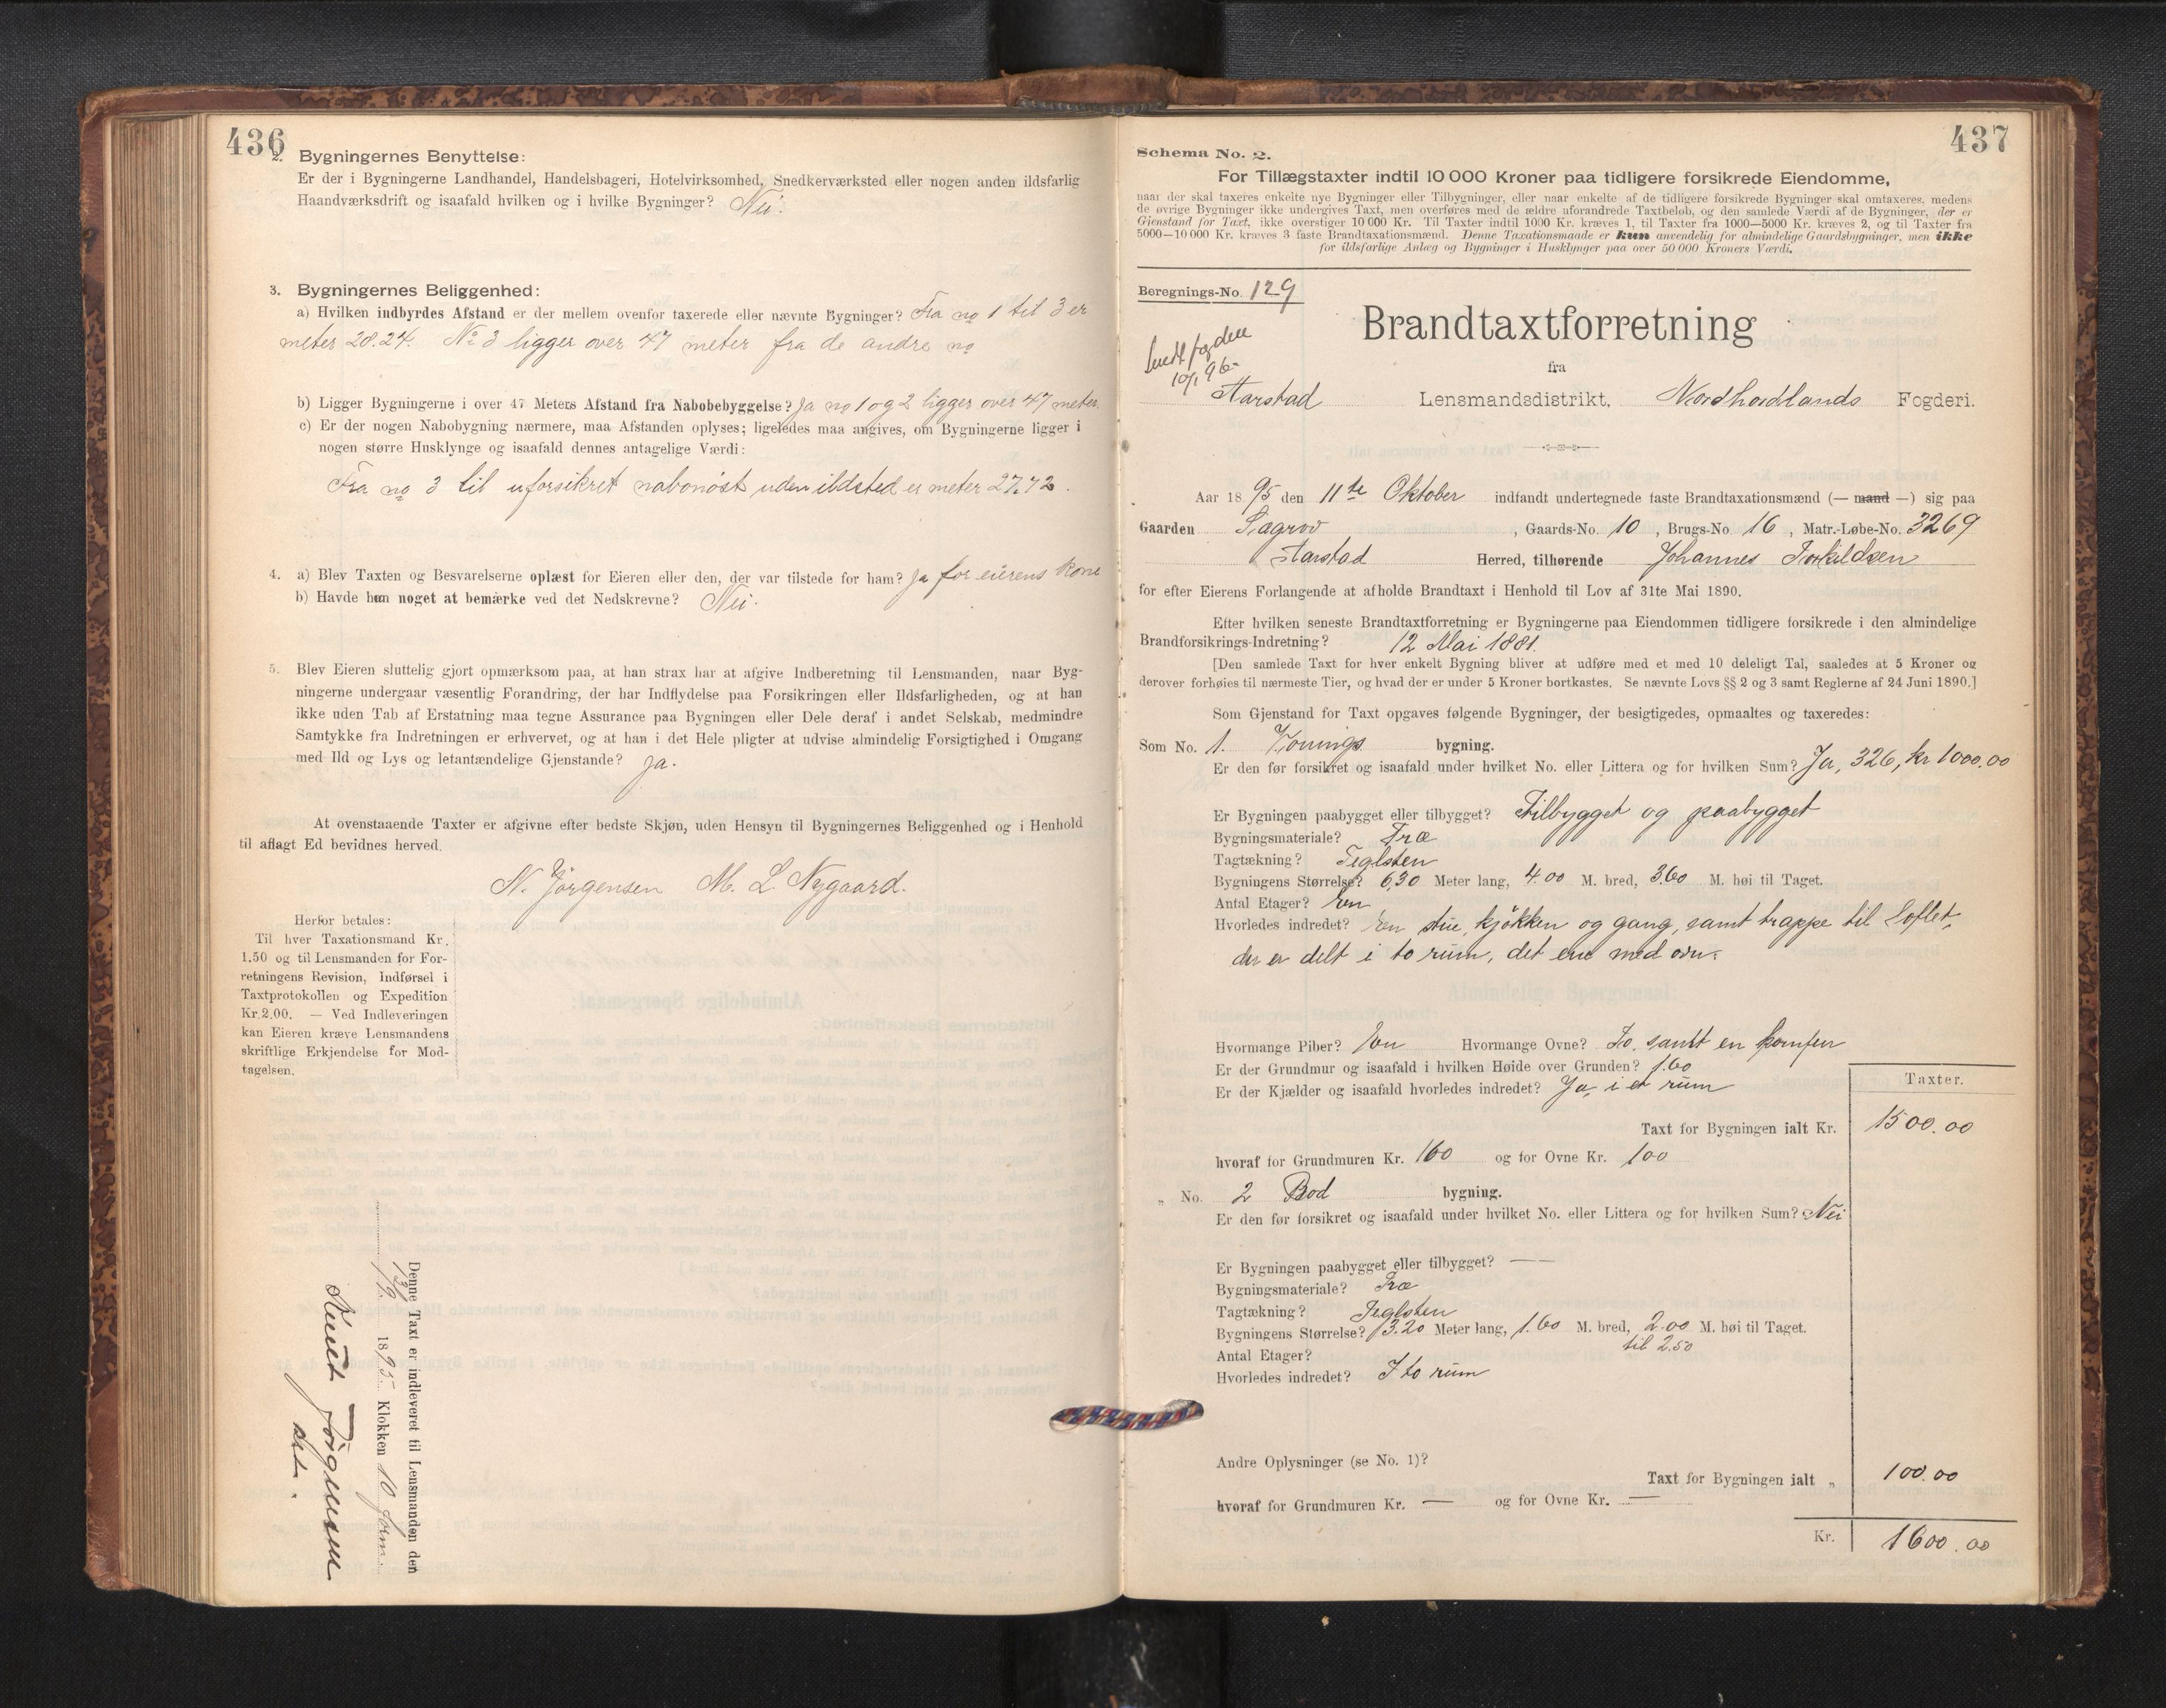 436
2. Bygningernes Benyttelse:
Er der i Bygningerne Landhandel, Handelsbageri, Hotelvirksomhed, Snedkerværksted eller nogen anden ildsfarlig
Haandværksdrift og isaafald hvilken og i hvilke Bygninger? Nei.
3. Bygningernes Beliggenhed:
a) Hvilken indbyrdes Afstand er der mellem ovenfor taxerede eller nævnte Bygninger? Fra no 1 til 3 er
meter 28.24. No 3 ligger over 47 meter fra de andre no
b) Ligger Bygningerne i over 47 Meters Afstand fra Nabobebyggelse? Ja no 1 og 2 ligger over 47 meter.
c) Er der nogen Nabobygning nærmere, maa Afstanden oplyses; ligeledes maa angives, om Bygningerne ligger i
nogen større Husklynge og isaafald dennes antagelige Værdi:
Fra no 3 til uforsikret nabonøst uden ildsted er meter 27.72.
4. a) Blev Taxten og Besvarelserne oplæst for Eieren eller den, der var tilstede for ham? Ja for eierens kone
b) Havde han noget at bemærke ved det Nedskrevne? Nei.
5. Blev Eieren sluttelig gjort opmærksom paa, at han strax har at afgive Indberetning til Lensmanden, naar Byg-
ningerne undergaar væsentlig Forandring, der har Indflydelse paa Forsikringen eller Ildsfarligheden, og at han
ikke uden Tab af Erstatning maa tegne Assurance paa Bygningen eller Dele deraf i andet Selskab, medmindre
Samtykke fra Indretningen er erhvervet, og at han i det Hele pligter at udvise almindelig Forsigtighed i Omgang
med Ild og Lys og letantændelige Gjenstande? Ja.
At ovenstaaende Taxter er afgivne efter bedste Skjøn, uden Hensyn til Bygningernes Beliggenhed og i Henhold
til aflagt Ed bevidnes herved.
N. Jörgensen M. L. Nygaard.
Herfor betales:
Til hver Taxationsmand Kr.
1.50 og til Lensmanden for For-
retningens Revision, Indførsel i
Taxtprotokollen og Expedition
Kr. 2.00. — Ved Indleveringen
kan Eieren kræve Lensmandens
skriftlige Erkjendelse for Mod-
tagelsen.
Denne Taxt er indleveret til Lensmanden den
1895 Klokken 10 form.
Jörgensen
437
Schema No. 2.
For Tillægstaxter indtil 10 000 Kroner paa tidligere forsikrede Eiendomme,
naar der skal taxeres enkelte nye Bygninger eller Tilbygninger, eller naar enkelte af de tidligere forsikrede Bygninger skal omtaxeres, medens
de øvrige Bygninger ikke undergives Taxt, men overføres med de ældre uforandrede Taxtbeløb, og den samlede Værdi af de Bygninger, der er
Gjenstand for Taxt, ikke overstiger 10 000 Kr. Til Taxter indtil 1000 Kr. kræves 1, til Taxter fra 1000—5000 Kr. kræves 2, og til Taxter fra
5000—10 000 Kr. kræves 3 faste Brandtaxationsmænd. Denne Taxationsmaade er kun anvendelig for almindelige Gaardsbygninger, men ikke
for ildsfarlige Anlæg og Bygninger i Husklynger paa over 50 000 Kroners Værdi.
Beregnings-No. 129
Brandtaxtforretning
Sendt fogden
10/1 96
fra
Aarstad Lensmandsdistrikt, Nordhordlands Fogderi.
Aar 1895 den 11te Oktober indfandt undertegnede faste Brandtaxationsmænd (— mand —) sig paa
Gaarden Sagrov, Gaards-No. 10, Brugs-No 16, Matr.-Løbe-No. 3269
Aarstad Herred, tilhørende Johannes Torkildsen
for efter Eierens Forlangende at afholde Brandtaxt i Henhold til Lov af 31te Mai 1890.
Efter hvilken seneste Brandtaxtforretning er Bygningerne paa Eiendommen tidligere forsikrede i den almindelige
Brandforsikrings-Indretning? 12 Mai 1881.
[Den samlede Taxt for hver enkelt Bygning bliver at udføre med et med 10 deleligt Tal, saaledes at 5 Kroner og
derover forhøies til nærmeste Tier, og hvad der er under 5 Kroner bortkastes. Se nævnte Lovs §§ 2 og 3 samt Reglerne af 24 Juni 1890.]
Som Gjenstand for Taxt opgaves følgende Bygninger, der besigtigedes, opmaaltes og taxeredes:
Som No. 1. Vonings bygning.
Er den før forsikret og isaafald under hvilket No. eller Littera og for hvilken Sum? Ja, 326, kr 1000.00
Er Bygningen paabygget eller tilbygget? Tilbygget og paabygget
Bygningsmateriale? Træ
Tagtækning? Teglsten
Bygningens Størrelse? 6.30 Meter lang, 4.00 M. bred, 3.60 M. høi til Taget.
Antal Etager? En
Hvorledes indredet? En stue, kjøkken og gang, samt trappe til loftet,
der er delt i to rum, det ene med ovn.
Hvormange Piber? En Hvormange Ovne? To, samt en komfur
Er der Grundmur og isaafald i hvilken Høide over Grunden? 1.60
Er der Kjælder og isaafald hvorledes indredet? Ja, i et rum
Taxter.
Taxt for Bygningen ialt Kr. 1500.00
hvoraf for Grundmuren Kr. 160 og for Ovne Kr. 100
„ No. 2 Bod bygning.
Er den før forsikret og isaafald under hvilket No. eller Littera og for hvilken Sum? Nei
Er Bygningen paabygget eller tilbygget? —
Bygningsmateriale? Træ
Tagtækning? Teglsten
Bygningens Størrelse? 3.20 Meter lang, 1.60 M. bred, 2.00 M. høi til Taget.
til 2.50
Antal Etager?
Hvorledes indredet? I to rum
Andre Oplysninger (se No. 1)?
Taxt for Bygningen ialt „ 100.00
hvoraf for Grundmuren Kr. — og for Ovne Kr. —
Kr. 1600.00